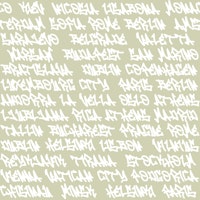 KIEV NICOSIA LISBONA MONA
SOFIA ROME BERLIN AMS
SARAJEVO BELGRADE VALETTA
WARSAW BUCAREST SAN MARINO
BRATISLAVA DUBLIN COPENHAGEN
LUXEMBOURG CITY PARIS BERN
ANDORRA LA VELLA OSLO ATHENS
LJUBLJANA RIGA ATHENS MADRID
TALLIN BUCHAREST PRAGUE ROME
DUBLIN HELSINKI LISBON BERN
REYKJAVIK TIRANA STOCKHOLM
VIENNA VATICAN CITY PODGORICA
CHISINAU MINSK HELSINKI PARIS